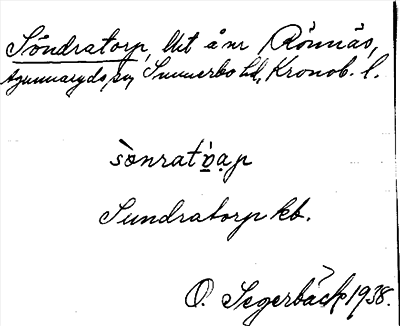 Söndratorp, lht å nr Rönnäs,
Agunnaryds sn, Sunnerbo hd, Kronob. l.
sònrat
Sundratorp kb.
O. Segerbäck 1938.